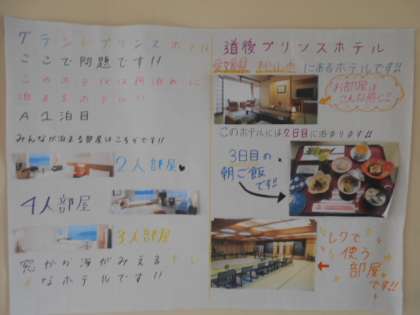 グランドプリンスホテル
ここで問題です!!
このホテルは何泊めに
泊まるホテル!!
A 1泊目
みんなが泊まる部屋はこちらです!!
2人部屋
4人部屋
3人部屋
窓から海がみえる
なホテルです!!
道後プリンスホテル
愛媛県 松山市 にあるホテルです!!
お部屋は
こんな感じ
このホテルには2日目に泊まります!!
3日目の
朝ご飯
です!!
レクで
使う
部屋
です!!